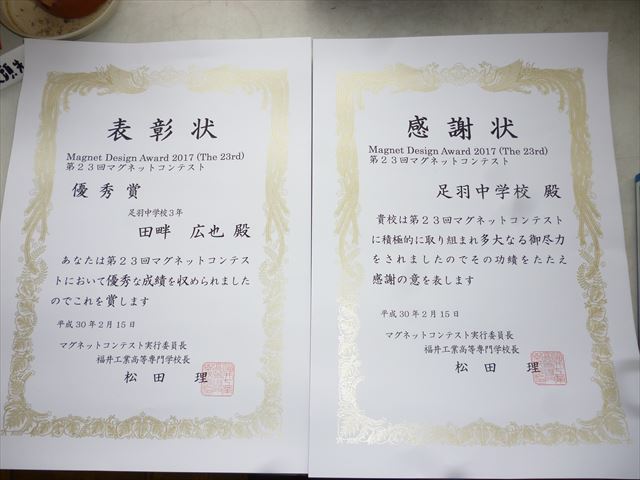 表彰状
Magnet Design Award 2017 (The 23rd)
第２３回マグネットコンテスト
優秀賞
足羽中学校３年
田畔 広也 殿
あなたは第２３回マグネットコンテス
トにおいて優秀な成績を収められました
のでこれを賞します
平成３０年２月１５日
マグネットコンテスト実行委員長
福井工業高等専門学校長
松田 理
感謝状
Magnet Design Award 2017 (The 23rd)
第２３回マグネットコンテスト
足羽中学校 殿
貴校は第２３回マグネットコンテスト
に積極的に取り組まれ多大なる御尽力
をされましたのでその功績をたたえ
感謝の意を表します
平成３０年２月１５日
マグネットコンテスト実行委員長
福井工業高等専門学校長
松田 理